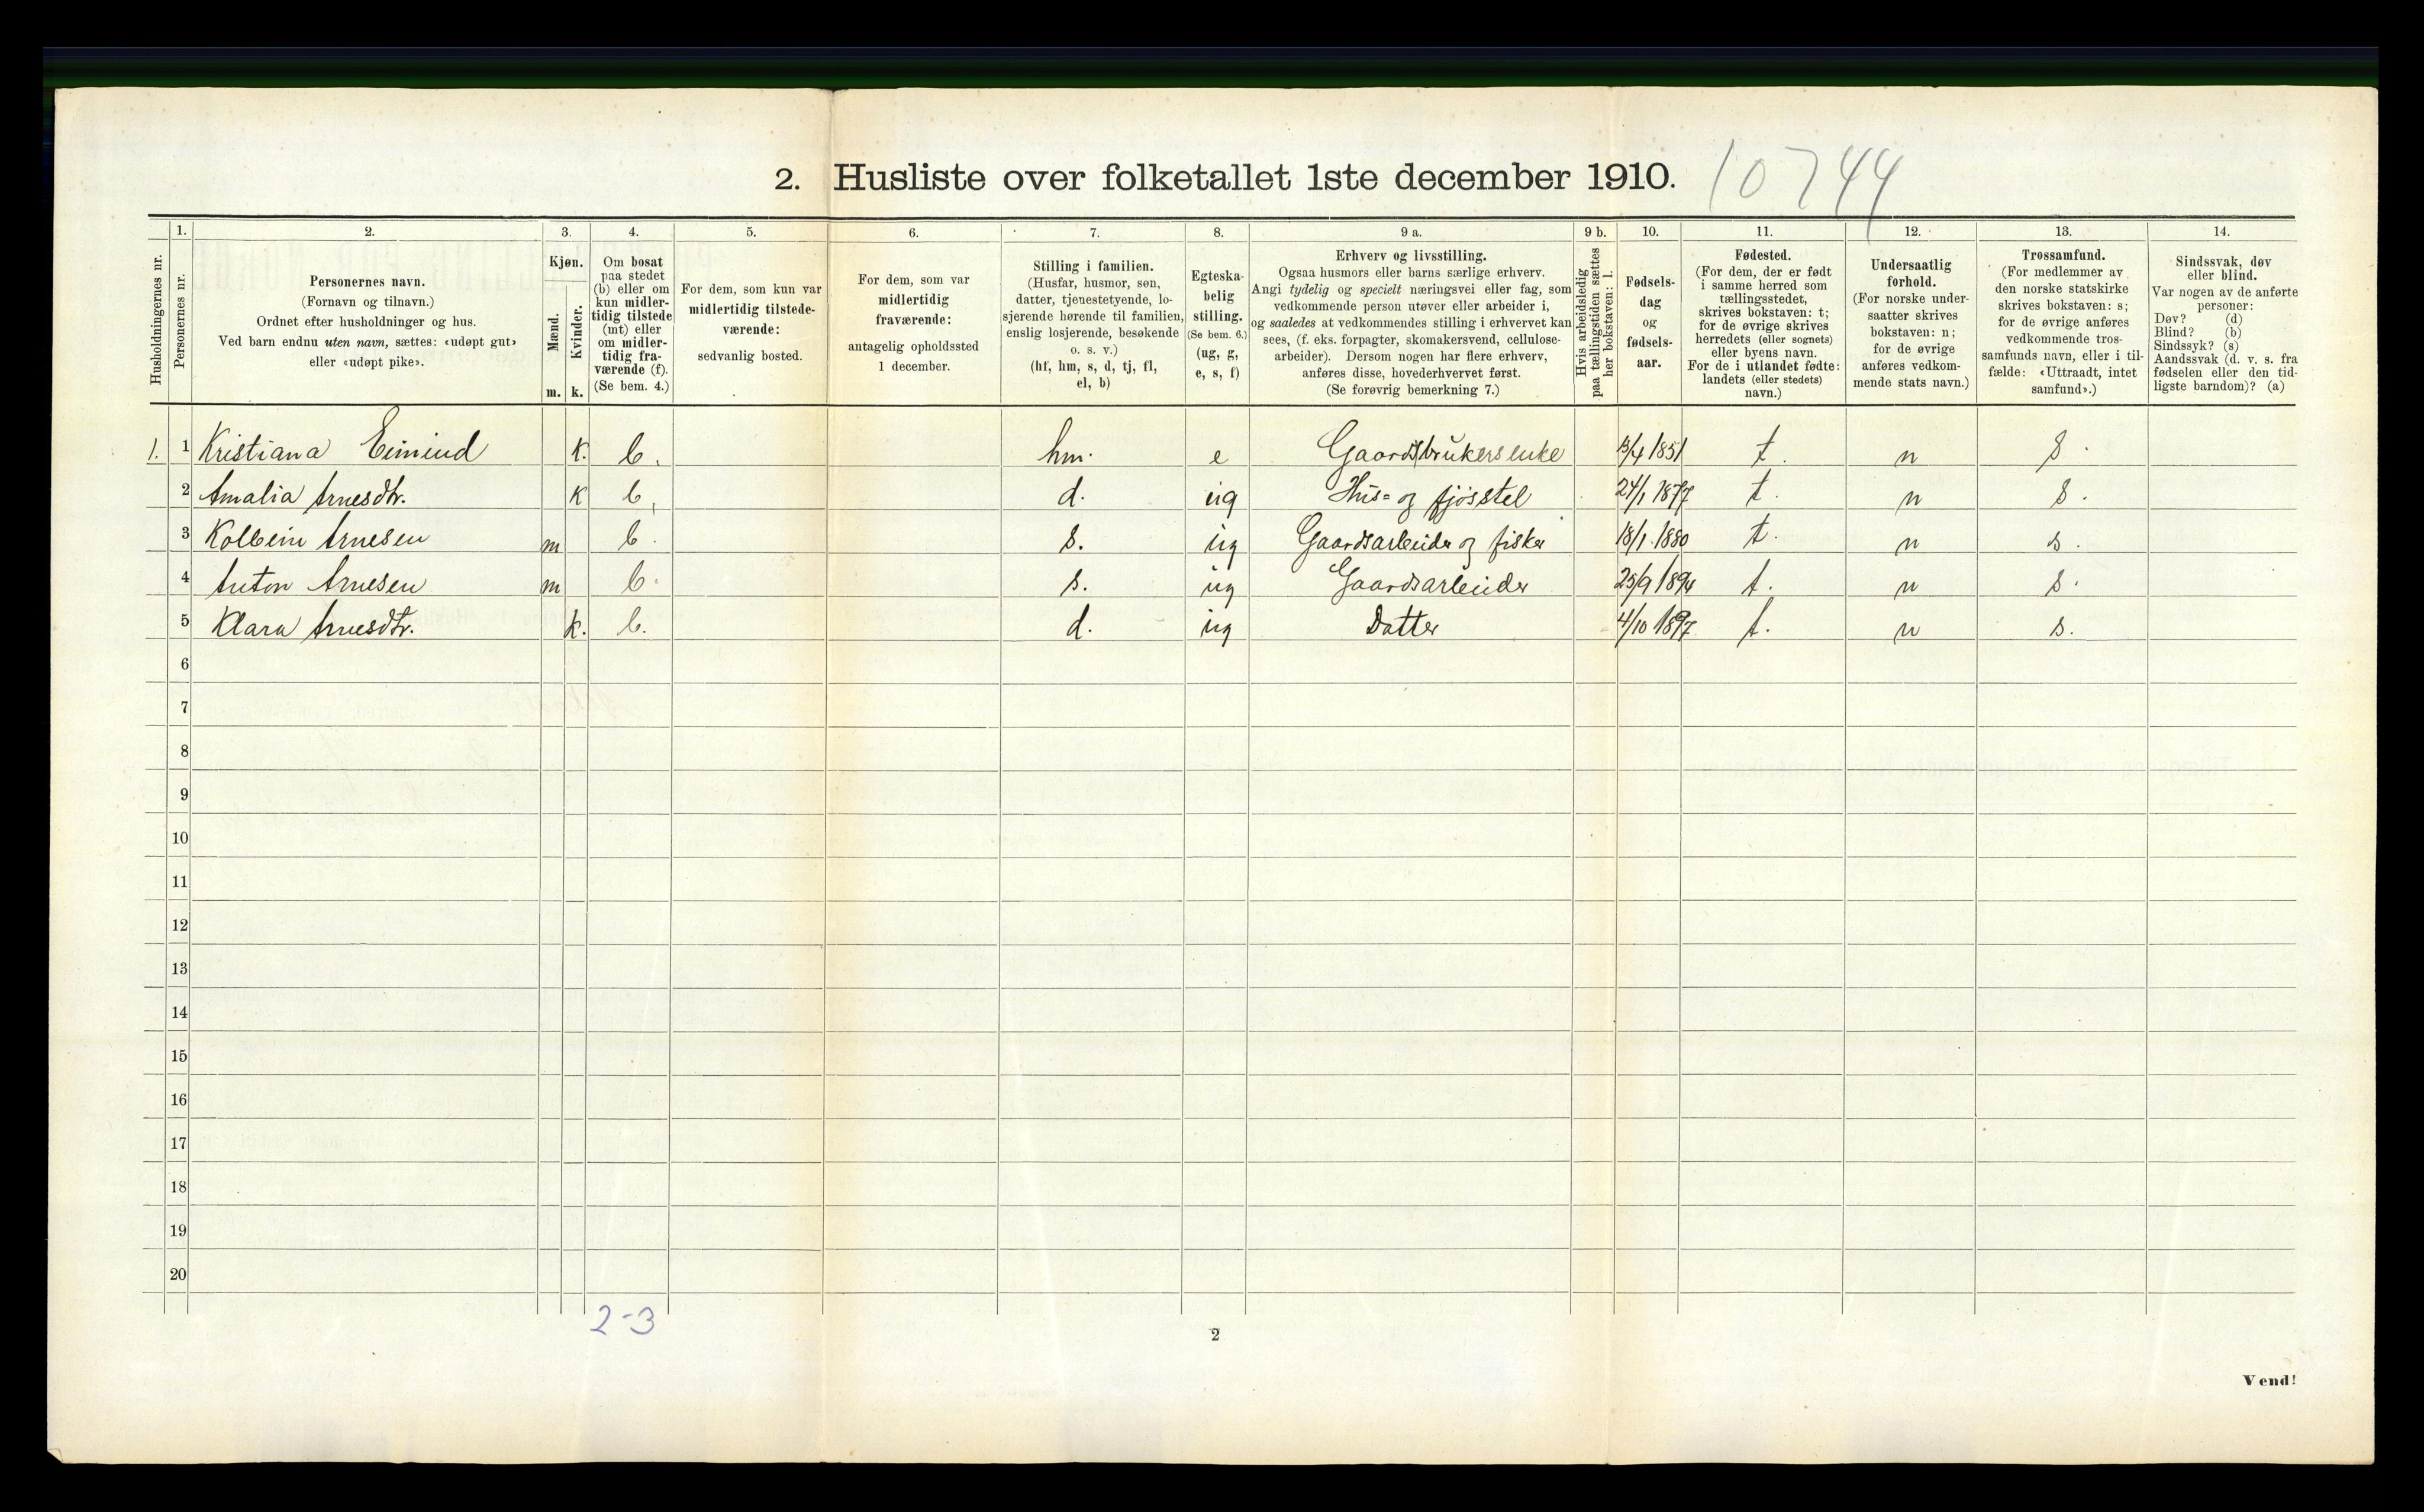 2. Husliste over folketallet 1ste december 1910. 10744
Husholdningernes nr.
1.
Personernes nr.
2.
Personernes navn.
(Fornavn og tilnavn.)
Ordnet efter husholdninger og hus.
Ved barn endnu uten navn, sættes: «udøpt gut»
eller «udøpt pike».
3.
Kjøn.
Mænd.
Kvinder.
m. k.
4.
Om bosat
paa stedet
(b) eller om
kun midler-
tidig tilstede
(mt) eller
om midler-
tidig fra-
værende (f).
(Se bem. 4.)
5.
For dem, som kun var
midlertidig tilstede-
værende:
sedvanlig bosted.
6.
For dem, som var
midlertidig
fraværende:
antagelig opholdssted
1 december.
7.
Stilling i familien.
(Husfar, husmor, søn,
datter, tjenestetyende, lo-
sjerende hørende til familien,
enslig losjerende, besøkende
o. s. v.)
(hf, hm, s, d, tj, fl,
el, b)
8.
Egteska-
belig
stilling.
(Se bem. 6.)
(ug, g,
e, s, f)
9 a.
Erhverv og livsstilling.
Ogsaa husmors eller barns særlige erhverv.
Angi tydelig og specielt næringsvei eller fag, som
vedkommende person utøver eller arbeider i,
og saaledes at vedkommendes stilling i erhvervet kan
sees, (f. eks. forpagter, skomakersvend, cellulose-
arbeider). Dersom nogen har flere erhverv,
anføres disse, hovederhvervet først.
(Se forøvrig bemerkning 7.)
9 b.
Hvis arbeidsledig
paa tællingstiden sættes
her bokstaven: l.
10.
Fødsels-
dag
og
fødsels-
aar.
11.
Fødested.
(For dem, der er født
i samme herred som
tællingsstedet,
skrives bokstaven: t;
for de øvrige skrives
herredets (eller sognets)
eller byens navn.
For de i utlandet fødte:
landets (eller stedets)
navn.)
12.
Undersaatlig
forhold.
(For norske under-
saatter skrives
bokstaven: n;
for de øvrige
anføres vedkom-
mende stats navn.)
13.
Trossamfund.
(For medlemmer av
den norske statskirke
skrives bokstaven: s;
for de øvrige anføres
vedkommende tros-
samfunds navn, eller i til-
fælde: «Uttraadt, intet
samfund».)
14.
Sindssvak, døv
eller blind.
Var nogen av de anførte
personer:
Døv? (d)
Blind? (b)
Sindssyk? (s)
Aandssvak (d. v. s. fra
fødselen eller den tid-
ligste barndom)? (a)
1. 1 Kristiana K. b. hm. e Gaardsbrukersenke 13/4 1851 t. n s.
2 Amalia Arnesdtr. K b. d. ug Hus= og fjøsstel 24/1 1877 t. n s.
3 Kolbein Arnesen m b. s. ug Gaardsarbeider og fisker 18/1. 1880 t. n s.
4 Anton Arnesen m b. s. ug Gaardsarbeider 25/9 1894 t. n s.
5 Klara Arnesdtr. k. b. d. ug Datter 4/10 1897 t. n s.
6
7
8
9
10
11
12
13
14
15
16
17
18
19
20
2-3
2
Vend!